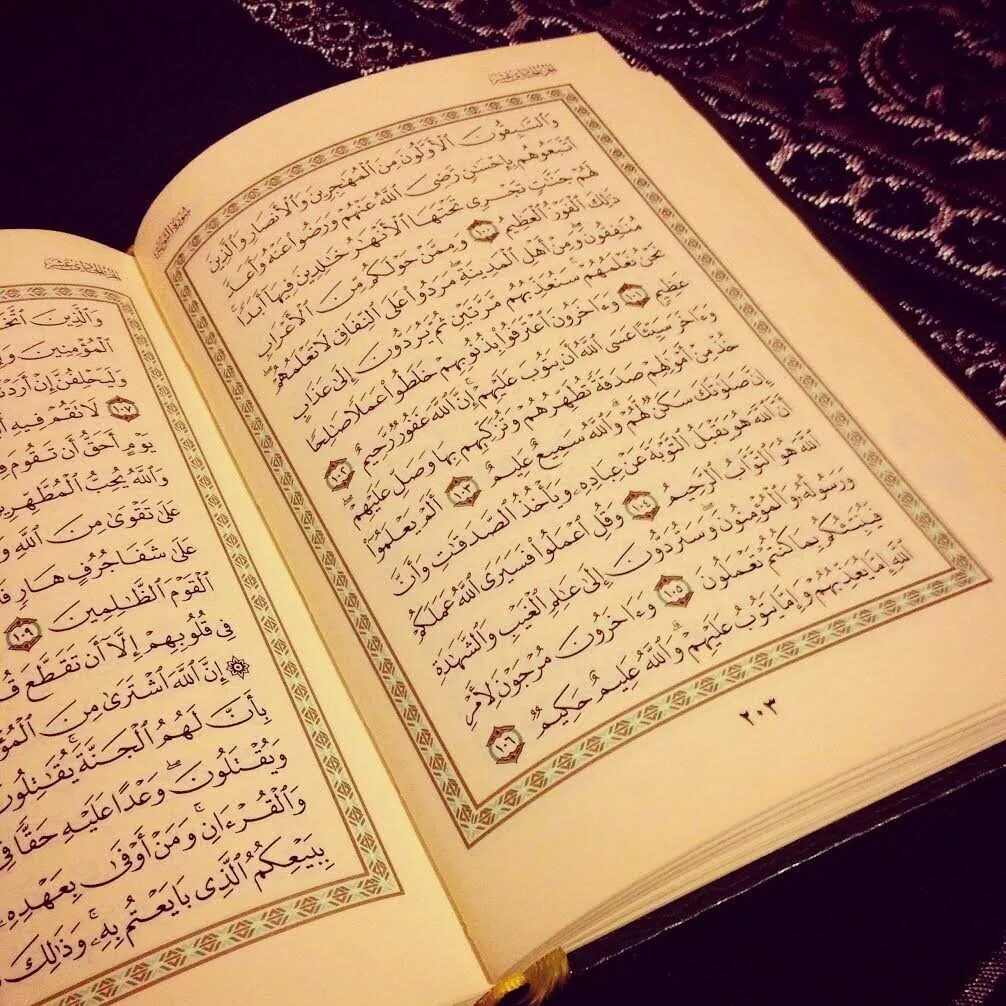 سُورَةُ التَّوْبَةِ
الجُزْءُ الحَادِي عَشَرَ
وَٱلسَّٰبِقُونَ ٱلْأَوَّلُونَ مِنَ ٱلْمُهَٰجِرِينَ وَٱلْأَنصَارِ وَٱلَّذِينَ
ٱتَّبَعُوهُم بِإِحْسَٰنٍ رَّضِيَ ٱللَّهُ عَنْهُمْ وَرَضُوا۟ عَنْهُ وَأَعَدَّ
لَهُمْ جَنَّٰتٍ تَجْرِى تَحْتَهَا ٱلْأَنْهَٰرُ خَٰلِدِينَ فِيهَآ أَبَدًا
ذَٰلِكَ ٱلْفَوْزُ ٱلْعَظِيمُ ١٠٠ وَمِمَّنْ حَوْلَكُم مِّنَ ٱلْأَعْرَابِ
مُنَٰفِقُونَ وَمِنْ أَهْلِ ٱلْمَدِينَةِ مَرَدُوا۟ عَلَى ٱلنِّفَاقِ لَا تَعْلَمُهُمْ
نَحْنُ نَعْلَمُهُمْ سَنُعَذِّبُهُم مَّرَّتَيْنِ ثُمَّ يُرَدُّونَ إِلَىٰ عَذَابٍ
عَظِيمٍ ١٠١ وَءَاخَرُونَ ٱعْتَرَفُوا۟ بِذُنُوبِهِمْ خَلَطُوا۟ عَمَلًا صَٰلِحًا
وَءَاخَرَ سَيِّئًا عَسَى ٱللَّهُ أَن يَتُوبَ عَلَيْهِمْ إِنَّ ٱللَّهَ غَفُورٌ رَّحِيمٌ ١٠٢
خُذْ مِنْ أَمْوَٰلِهِمْ صَدَقَةً تُطَهِّرُهُمْ وَتُزَكِّيهِم بِهَا وَصَلِّ عَلَيْهِمْ
إِنَّ صَلَوٰتَكَ سَكَنٌ لَّهُمْ وَٱللَّهُ سَمِيعٌ عَلِيمٌ ١٠٣ أَلَمْ يَعْلَمُوٓا۟
أَنَّ ٱللَّهَ هُوَ يَقْبَلُ ٱلتَّوْبَةَ عَنْ عِبَادِهِۦ وَيَأْخُذُ ٱلصَّدَقَٰتِ وَأَنَّ
ٱللَّهَ هُوَ ٱلتَّوَّابُ ٱلرَّحِيمُ ١٠٤ وَقُلِ ٱعْمَلُوا۟ فَسَيَرَى ٱللَّهُ عَمَلَكُمْ
وَرَسُولُهُۥ وَٱلْمُؤْمِنُونَ وَسَتُرَدُّونَ إِلَىٰ عَٰلِمِ ٱلْغَيْبِ وَٱلشَّهَٰدَةِ
فَيُنَبِّئُكُم بِمَا كُنتُمْ تَعْمَلُونَ ١٠٥ وَءَاخَرُونَ مُرْجَوْنَ لِأَمْرِ
ٱللَّهِ إِمَّا يُعَذِّبُهُمْ وَإِمَّا يَتُوبُ عَلَيْهِمْ وَٱللَّهُ عَلِيمٌ حَكِيمٌ ١٠٦
٢٠٣
الجُزْءُ الحَادِي عَشَرَ
وَٱلَّذِينَ
ٱلْمُؤْمِنِينَ
وَلَيَحْلِفُنَّ إِنْ
١٠٧ لَا تَقُمْ فِيهِ
يَوْمٍ أَحَقُّ أَن تَقُومَ
وَٱللَّهُ يُحِبُّ ٱلْمُطَّهِّرِينَ
عَلَىٰ تَقْوَىٰ مِنَ ٱللَّهِ
عَلَىٰ شَفَا جُرُفٍ هَارٍ
ٱلْقَوْمَ ٱلظَّٰلِمِينَ ١٠٩
فِى قُلُوبِهِمْ إِلَّآ أَن تَقَطَّعَ
۞ إِنَّ ٱللَّهَ ٱشْتَرَىٰ مِنَ
بِأَنَّ لَهُمُ ٱلْجَنَّةَ يُقَٰتِلُونَ
وَيُقْتَلُونَ وَعْدًا عَلَيْهِ حَقًّا
وَٱلْقُرْءَانِ وَمَنْ أَوْفَىٰ بِعَهْدِهِۦ
بِبَيْعِكُمُ ٱلَّذِى بَايَعْتُم بِهِۦ وَذَٰلِكَ